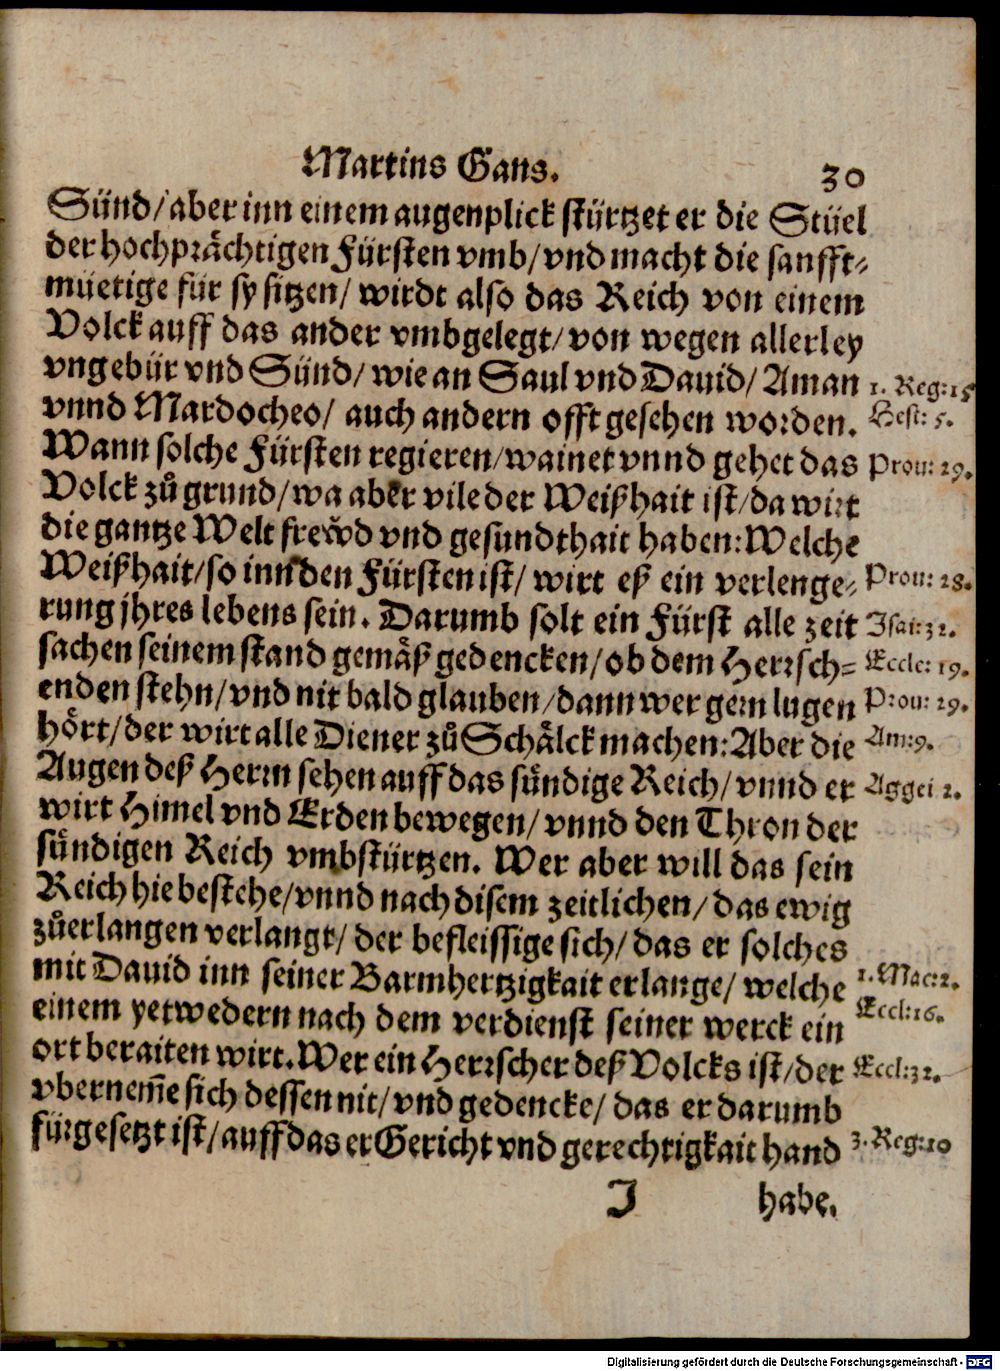 Martins Gans. 30
Sünd/ aber inn einem augenplick stürtzet er die Stüel
der hochprächtigen Fürsten vmb/ vnd macht die sanfft-
müetige für sy sitzen/ wirdt also das Reich von einem
Volck auff das ander vmbgelegt/ von wegen allerley
vngebür vnd Sünd/ wie an Saul vnd Dauid/ Aman 1. Reg: 15
vnnd Mardocheo/ auch andern offt gesehen worden. Hest: 5.
Wann solche Fürsten regieren/ wainet vnnd gehet das Prou: 29.
Volck zů grund/ wa aber vile der Weißhait ist/ da wirt
die gantze Welt frewd vnd gesundthait haben: Welche
Weißhait/ so inn den Fürsten ist/ wirt eß ein verlenge- Prou: 28.
rung jhres lebens sein. Darumb solt ein Fürst alle zeit Isai: 32.
sachen seinem stand gemåß gedencken/ ob dem Herrsch- Eccle: 19.
enden stehn/ vnd nit bald glauben/ dann wer gern lugen Prou: 29.
hört/ der wirt alle Diener zů Schälck machen: Aber die Am: 9.
Augen deß Herrn sehen auff das sündige Reich/ vnnd er Aggei 2.
wirt Himel vnd Erden bewegen/ vnnd den Thron der
sündigen Reich vmbstürtzen. Wer aber will das sein
Reich hie bestehe/ vnnd nach disem zeitlichen/ das ewig
zůerlangen verlangt/ der befleissige sich/ das er solches
mit Dauid inn seiner Barmhertzigkait erlange/ welche 1. Mac: 2.
einem yetwedern nach dem verdienst seiner werck ein Eccl: 16.
ort beraiten wirt. Wer ein Herrscher deß Volcks ist/ der Eccl: 32.
vbernem̃e sich dessen nit/ vnd gedencke/ das er darumb
fürgesetzt ist/ auff das er Gericht vnd gerechtigkait hand 3. Reg: 10
J habe.
Digitalisierung gefördert durch die Deutsche Forschungsgemeinschaft - DFG